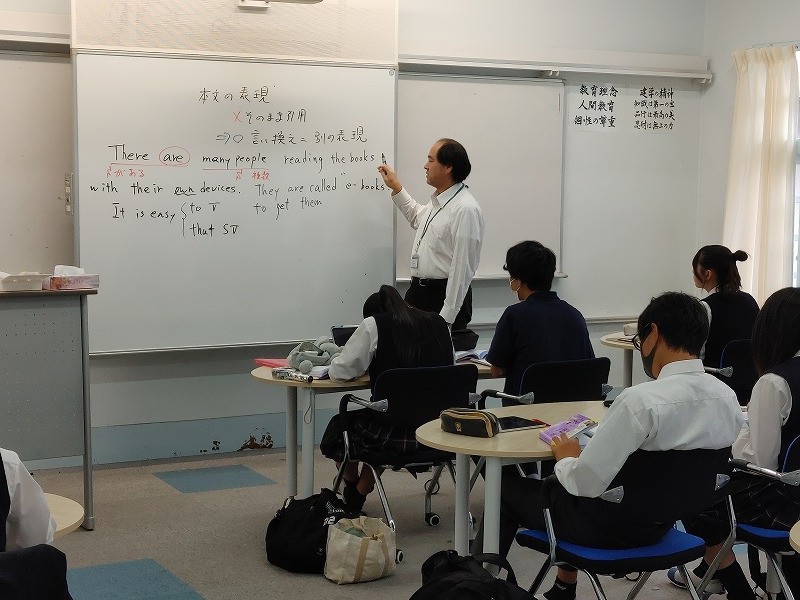 本文の表現
×そのまま引用
⇒○言い換え=別の表現
There are many people reading the books
がある 複数
with their own devices. They are called "e-books
It is easy to V to get them
that SV
教育理念
人間教育
個性の尊重
建学の精神
知識は第一の宝
品行は最高の美